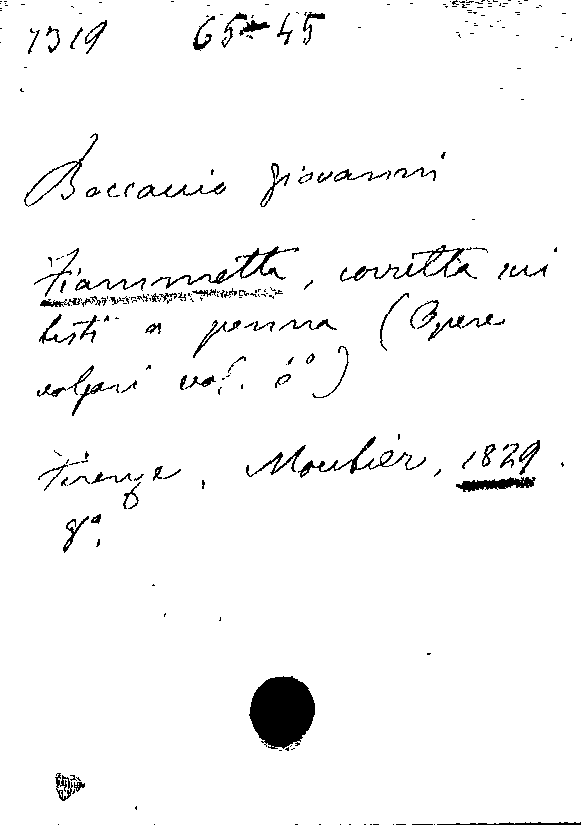 1319 65-45
Boccaccio Giovanni
Fiammetta, corretta sui
testi a penna (Opere
volgari vol. 6°)
Firenze, Moutier, 1829.
8°.